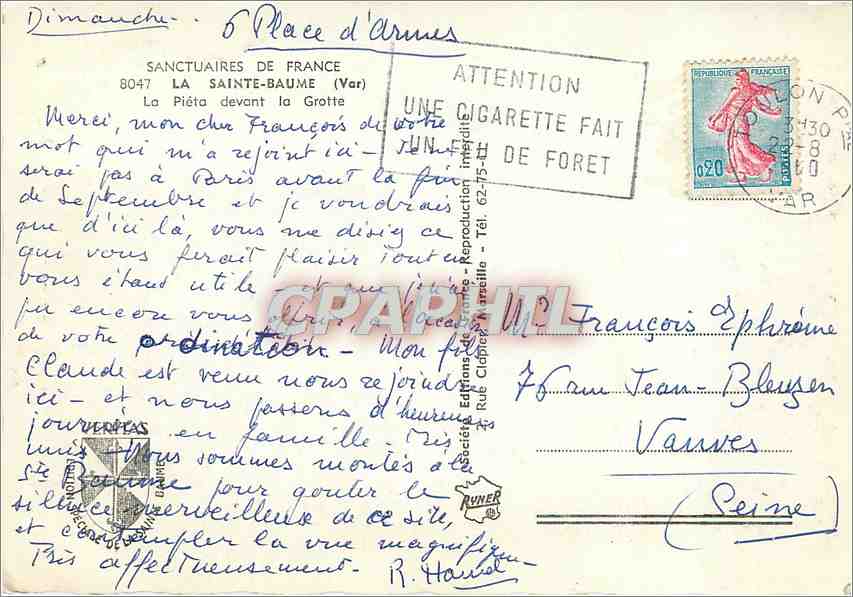 Dimanche -
6 Place d'Armes
SANCTUAIRES DE FRANCE
8047 LA SAINTE-BAUME (Var)
La Piéta devant la Grotte
Merci, mon cher François de votre
mot qui m'a rejoint ici - Je ne
serai pas à Paris avant la fin
de Septembre et je voudrais
que d'ici là, vous me disiez ce
qui vous ferait plaisir tout en
vous étant utile - et que je n'ai
pu encore vous offrir, à l'occasion
de votre ordination - Mon fils
Claude est venu nous rejoindre
ici - et nous passons d'heureuses
journées en famille. Très
unis - Nous sommes montés à la
Ste Baume pour goûter le
silence merveilleux de ce site,
et contempler la vue magnifique -
Très affectueusement -
VERITAS
ATTENTION
UNE CIGARETTE FAIT
UN FEU DE FORET
REPUBLIQUE FRANÇAISE
0,20
POSTES
TOULON
VAR
Société Editions de France - Reproduction interdite
2, Rue Clapier, Marseille - Tél. 62-75-41
RYNER
CPAPHIL
Mr François Ephrème
76 rue Jean-Bleuzen
Vanves
(Seine)